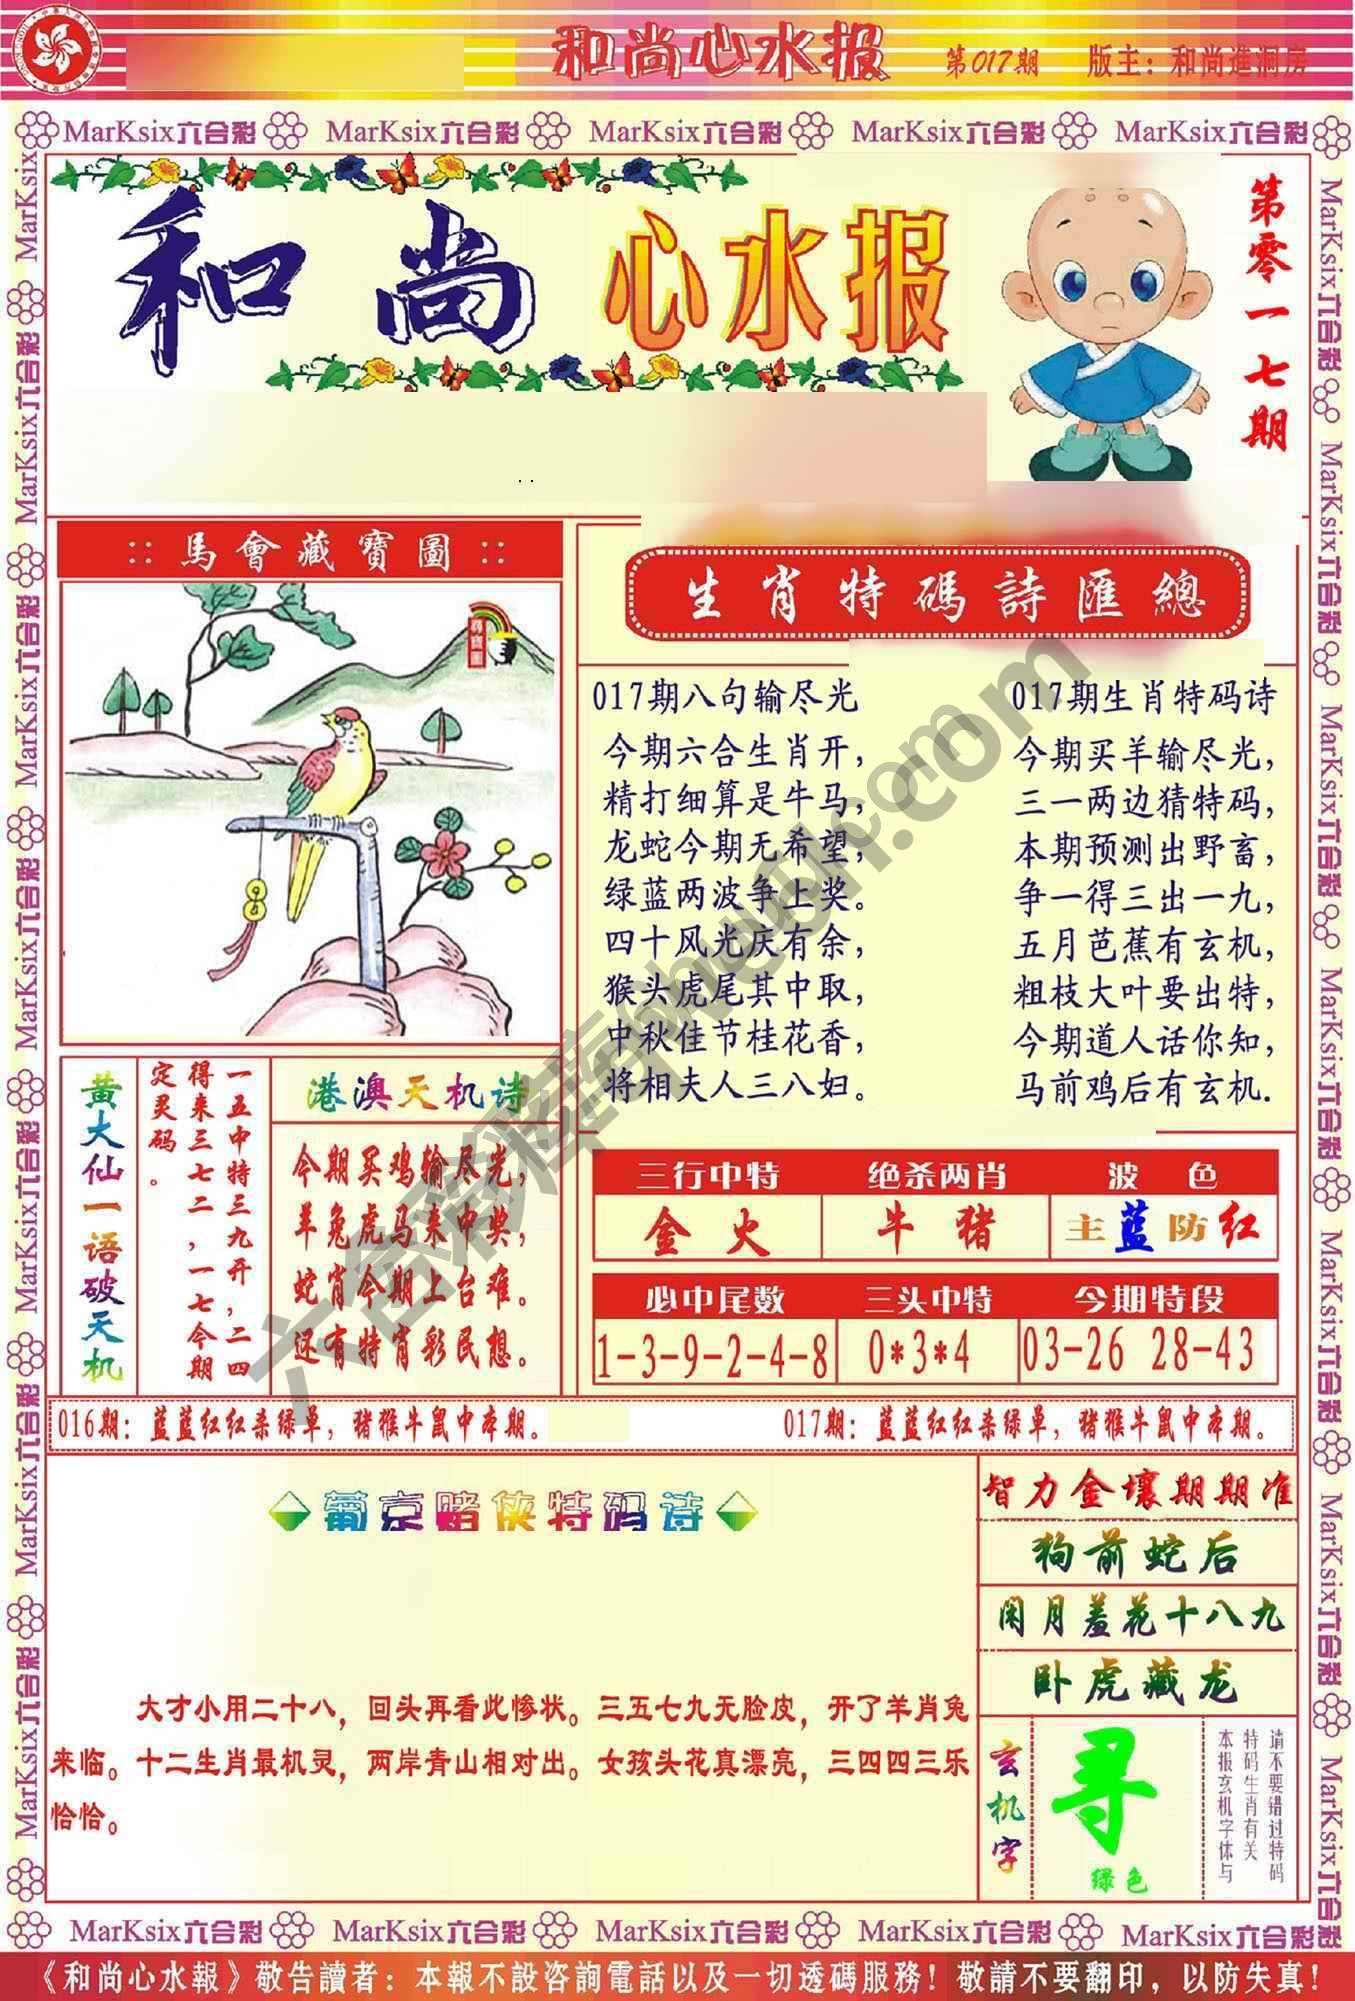 和尚心水报 第017期 版主：和尚進洞房
MarKsix六合彩 MarKsix六合彩 MarKsix六合彩 MarKsix六合彩 MarKsix六合彩
和尚心水报
第零一七期
::馬會藏寶圖::
生肖特碼詩匯總
017期八句输尽光
今期六合生肖开，
精打细算是牛马，
龙蛇今期无希望，
绿蓝两波争上奖。
四十风光庆有余，
猴头虎尾其中取，
中秋佳节桂花香，
将相夫人三八妇。
017期生肖特码诗
今期买羊输尽光，
三一两边猜特码，
本期预测出野畜，
争一得三出一九，
五月芭蕉有玄机，
粗枝大叶要出特，
今期道人话你知，
马前鸡后有玄机.
黄大仙一语破天机
一五中特三九开，二四
得来三七二，一七今期
定灵码。
港澳天机诗
今期买鸡输尽光，
羊兔虎马来中奖，
蛇肖今期上台难。
还有特肖彩民想。
三行中特 绝杀两肖 波色
金火 牛猪 主蓝防红
必中尾数 三头中特 今期特段
1-3-9-2-4-8 0*3*4 03-26 28-43
016期：蓝蓝红红杀绿单，猪猴牛鼠中本期。 017期：蓝蓝红红杀绿单，猪猴牛鼠中本期。
葡京赌侠特码诗
大才小用二十八，回头再看此惨状。三五七九无脸皮，开了羊肖兔
来临。十二生肖最机灵，两岸青山相对出。女孩头花真漂亮，三四四三乐
恰恰。
智力金壤期期准
狗前蛇后
闭月羞花十八九
卧虎藏龙
玄机字
寻
绿色
请不要错过特码
特码生肖有关
本报玄机字体与
MarKsix六合彩 MarKsix六合彩 MarKsix六合彩 MarKsix六合彩 MarKsix六合彩
《和尚心水報》敬告讀者：本報不設咨詢電話以及一切透碼服務！敬請不要翻印，以防失真！